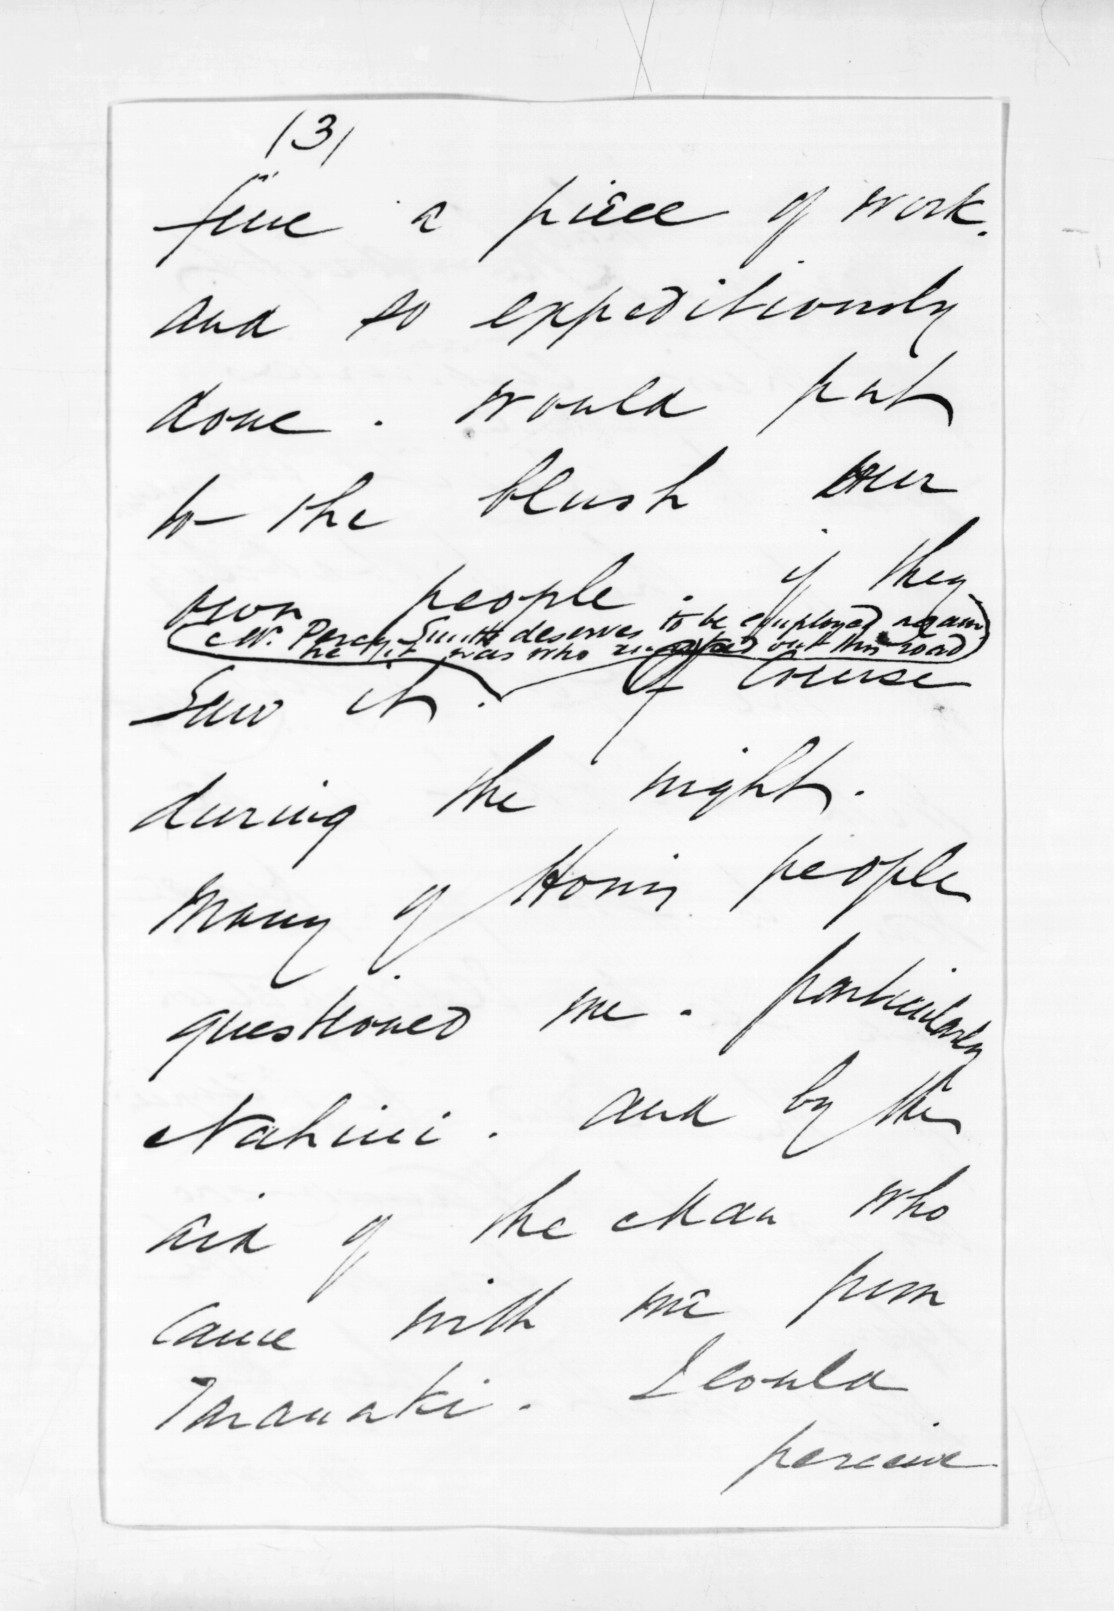 /3/
fine a piece of work.
and so expeditiously
done. would put
to the blush our
own people. if they
Mr. Percy Smith deserves to be employed again
he it was who out this road
Saw it. Of Course
during the night.
Many of Honis people
questioned me. particularly
Nahini. and by the
aid of the Man who
came with me from
Taranaki. I could
perceive